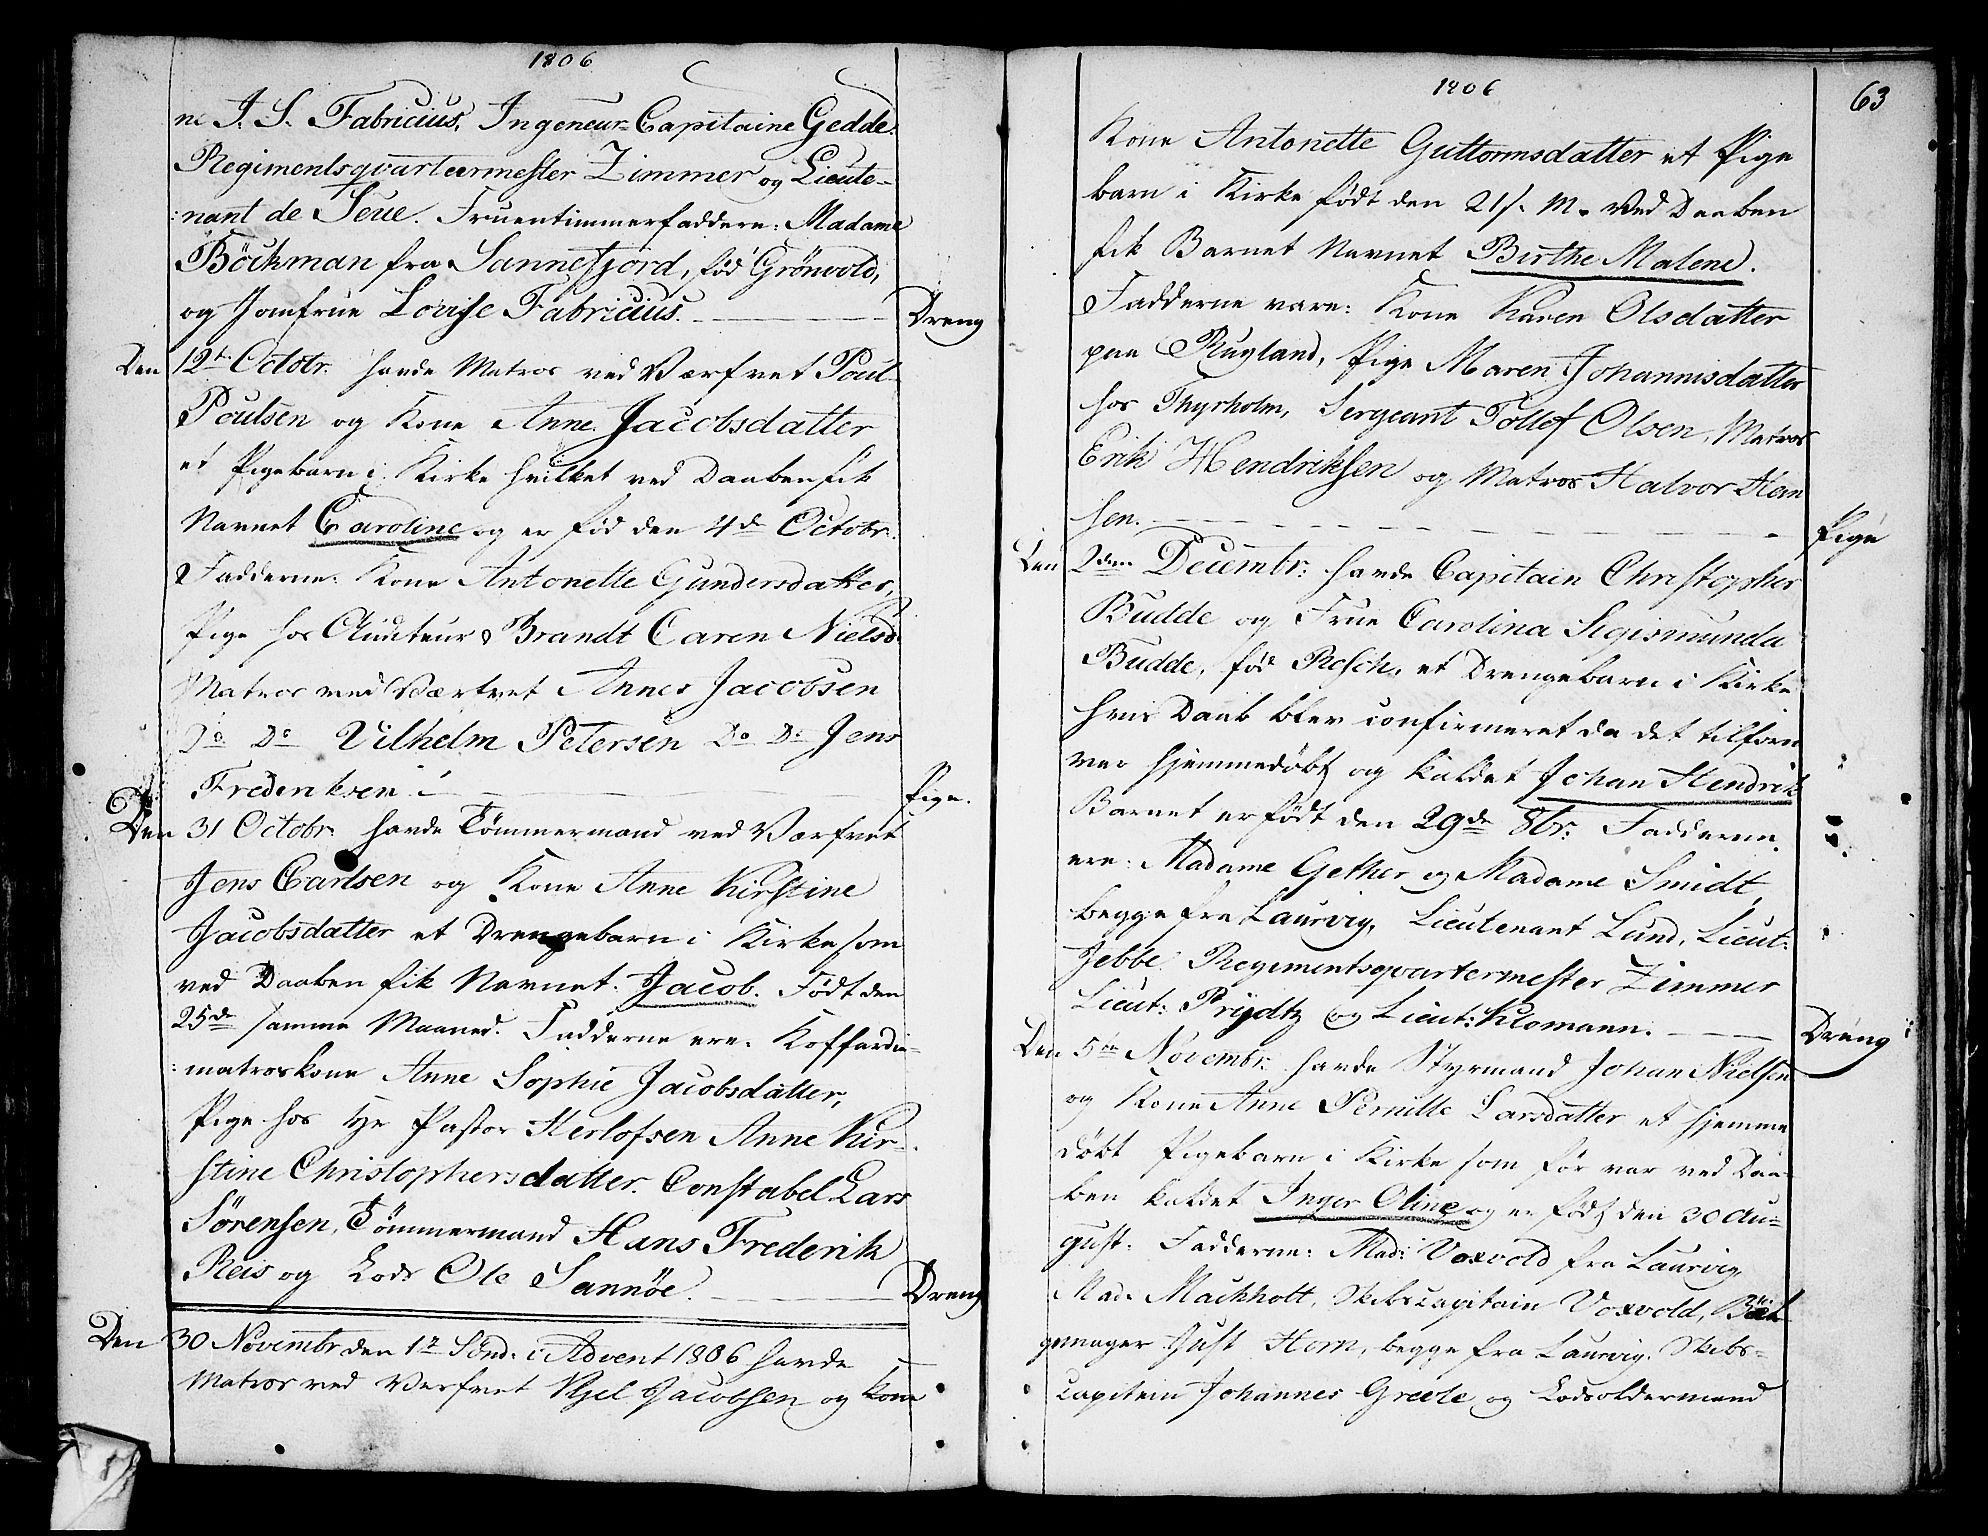 1806
ne I. S. Fabricius, Ingeneur-Capitaine Gedde.
Regimentsqvarteermester Zimmer og Lieute-
:nant de Seue. Fruentimmerfaddere: Madame
Böckman fra Sannefjord, fød Grönvold,
og Jomfrue Lovise Fabricius.
Dreng
Den 12te Octobr. havde Matros ved Værfvet Poul
Poulsen og Kone Anne Jacobsdatter
et Pigebarn i Kirke hvilket ved Daaben fik
Navnet Caroline og er fød den 4de Octobr.
Fadderne: Kone Antonette Gundersdatter,
Pige hos Auditeur Brandt Caren Nielsd.
Matros ved Værfvet Annes Jacobsen
Do Do Vilhelm Petersen Do Do Jens
Frederiksen
Pige.
Den 31 Octobr. havde Tömmermand ved Værfvet
Jens Carlsen og Kone Anne Kirstine
Jacobsdatter et Drengebarn i Kirke som
ved Daaben fik Navnet Jacob. Födt den
25de samme Maaned. Fadderne ere: Koffardie-
:matroskone Anne Sophie Jacobsdatter,
Pige hos Hr Pastor Herlofsen Anne Kir-
stine Christophersdatter. Constabel Lars
Sörensen, Tömmermand Hans Frederik
Reis og Lods Ole Sannöe.
Dreng
Den 30 Novembr den 1te Sönd. i Advent 1806 havde
Matros ved Verfvet Kjel Jacobsen og Kone
1806
63
Kone Antonette Guttormsdatter et Pige
barn i Kirke födt den 21 s. M. Ved Daaben
fik Barnet Navnet Birthe Malene.
Fadderne vare: Kone Karen Olsdatter
paa Rugland, Pige Maren Johannisdatter
hos Thyrholm, Sergeant Tollef Olsen, Matros
Erik Hendriksen og Matros Halvor Han
sen.
Pige
Den 2den Decembr: havde Capitain Christopher
Budde og Frue Carolina Sigismunda
Budde, fød Resch, et Drengebarn i Kirke
hvis Daab blev confirmeret da det tilforn
var hjemmedöbt og kaldet Johan Hendrik
Barnet er födt den 29de 8br: Fadderne
ere: Madame Gether og Madame Smidt,
begge fra Laurvig, Lieutenant Lund, Lieut:
Jebbe Regimentsqvartermester Zimmer
Lieut: Prydtz og Lieut: Klomann.
Dreng
Den 5te Novembr: havde Styrmand Johan Nielsen
og Kone Anne Pernille Larsdatter et hjemme
döbt Pigebarn i Kirke som för var ved Daa-
ben kaldet Inger Oline og er födt den 30 Au-
gust. Fadderne: Mad: Voxvold fra Laurvig,
Mad. Machholt, Skibscapitain Voxvold, Böd-
germager Just Horn, begge fra Laurvig. Skibs-
capitain Johannes Greele og Lodsoldermand